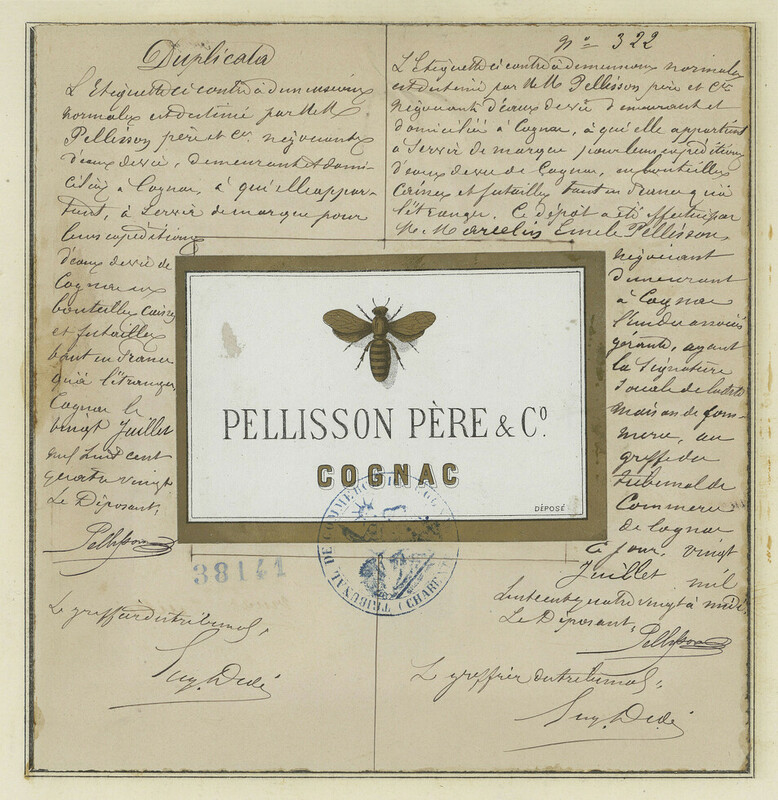 Duplicata
L'Etiquette ci contre à dimensions
normales est destiné par MM
Pellisson père et Cie négociants
d'eaux de vie, demeurant et domi-
ciliés à Cognac à qui elle appar-
tient, à servir de marque pour
leurs expéditions
d'eaux de vie de
Cognac en
bouteilles caisses
et futailles
tant en France
qu'à l'étranger,
Cognac le
vingt Juillet
mil huit cent
quatre vingt
Le Déposant,
Pellisson
Le greffier du tribunal,
No 322
L'Etiquette ci contre à dimensions normales
est destiné par MM Pellisson père et Cie
négociants d'eaux de vie demeurant et
domiciliés à Cognac, à qui elle appartient
à servir de marque pour leurs expéditions
d'eaux de vie de Cognac, en bouteilles
caisses et futailles tant en France qu'à
l'étranger. Ce dépôt a été effectué par
M. Marcelin Emile Pellisson,
négociant
demeurant
à Cognac
l'un des associés
gérants, ayant
la signature
sociale de la dite
maison de com-
merce, au
greffe du
tribunal de
Commerce
de Cognac
ce jour, vingt
Juillet mil
huit cent quatre vingt à midi
Le Déposant,
Pellisson
Le greffier du tribunal,
PELLISSON PÈRE & Co.
COGNAC
DÉPOSÉ
38141
TRIBUNAL DE COMMERCE DE COGNAC
(CHARENTE)